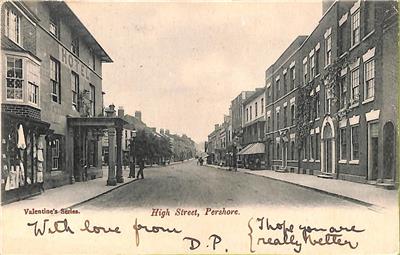 HOTEL
Valentine's Series.
High Street, Pershore.
With love from D.P. { I hope you are
really better